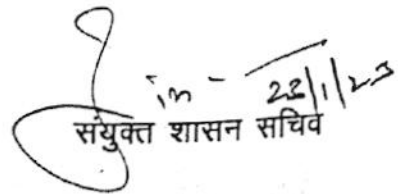 23/1/23
संयुक्त शासन सचिव